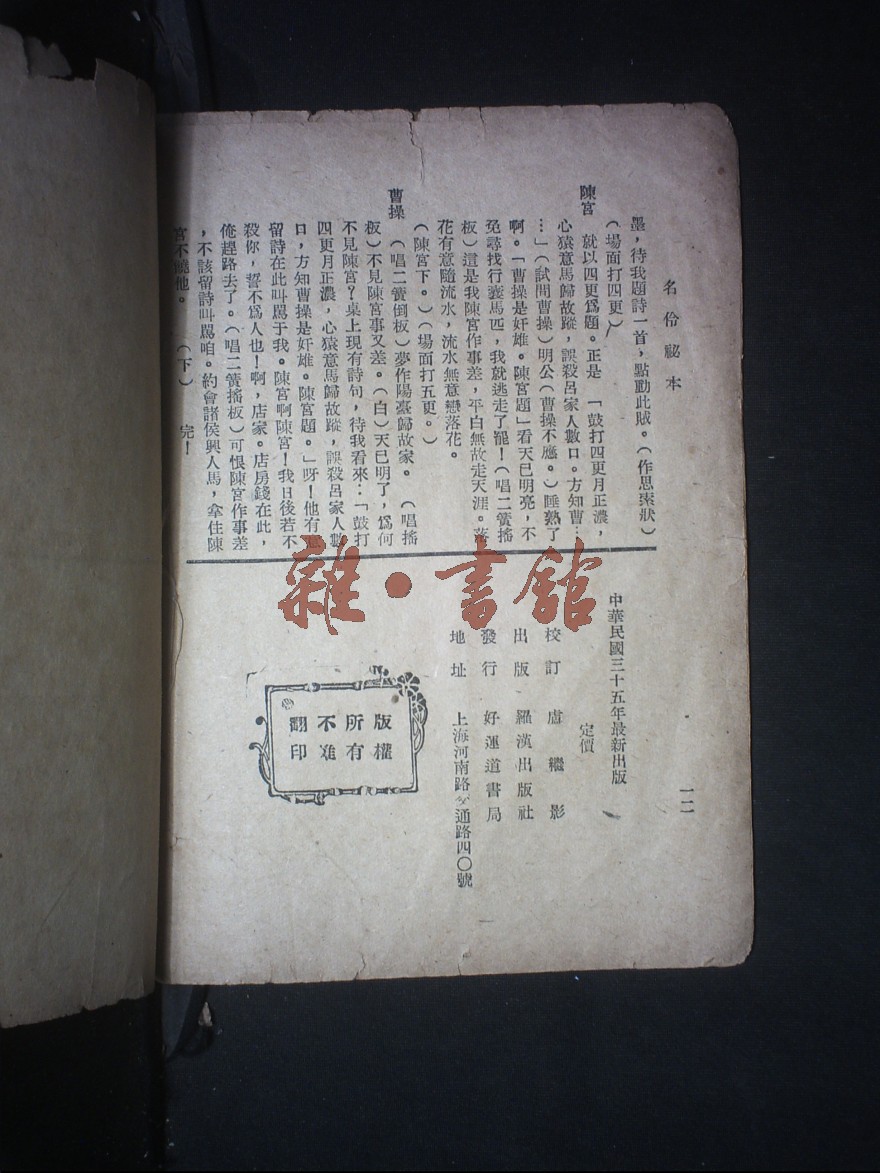 名伶祕本
墨，待我題詩一首，點動此賊。（作思索狀）
（場面打四更）
陳宮　就以四更爲題。正是　「鼓打四更月正濃，
心猿意馬歸故蹤，誤殺呂家人數口。方知曹…
…」（試問曹操）明公（曹操不應。）睡熟了
啊。「曹操是奸雄。陳宮題」看天已明亮，不
免尋找行囊馬匹，我就逃走了罷！（唱二簧搖
板）這是我陳宮作事差，平白無故走天涯。落
花有意隨流水，流水無意戀落花。
（陳宮下。）（場面打五更。）
曹操　（唱二簧倒板）夢作陽臺歸故家。　（唱搖
板）不見陳宮事又差。（白）天已明了，爲何
不見陳宮？桌上現有詩句，待我看來：「鼓打
四更月正濃，心猿意馬歸故蹤，誤殺呂家人數
口，方知曹操是奸雄。陳宮題。」呀！他有
留詩在此叫罵于我。陳宮啊陳宮！我日後若不
殺你，誓不爲人也！啊，店家。店房錢在此，
俺趕路去了。（唱二簧搖板）可恨陳宮作事差
，不該留詩叫罵咱。約會諸侯興人馬，拿住陳
宮不饒他。　（下）　完！
一二
中華民國三十五年最新出版
定價
校訂　盧繼影
出版　羅漢出版社
發行　好運道書局
地址　上海河南路交通路四〇號
版權
所有
不准
翻印
雜·書館